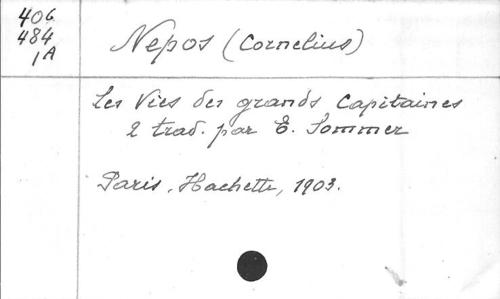 406
484
1A
Nepos (Cornelius)
Les Vies des grands Capitaines
2 trad. par E. Sommer
Paris, Hachette, 1903.